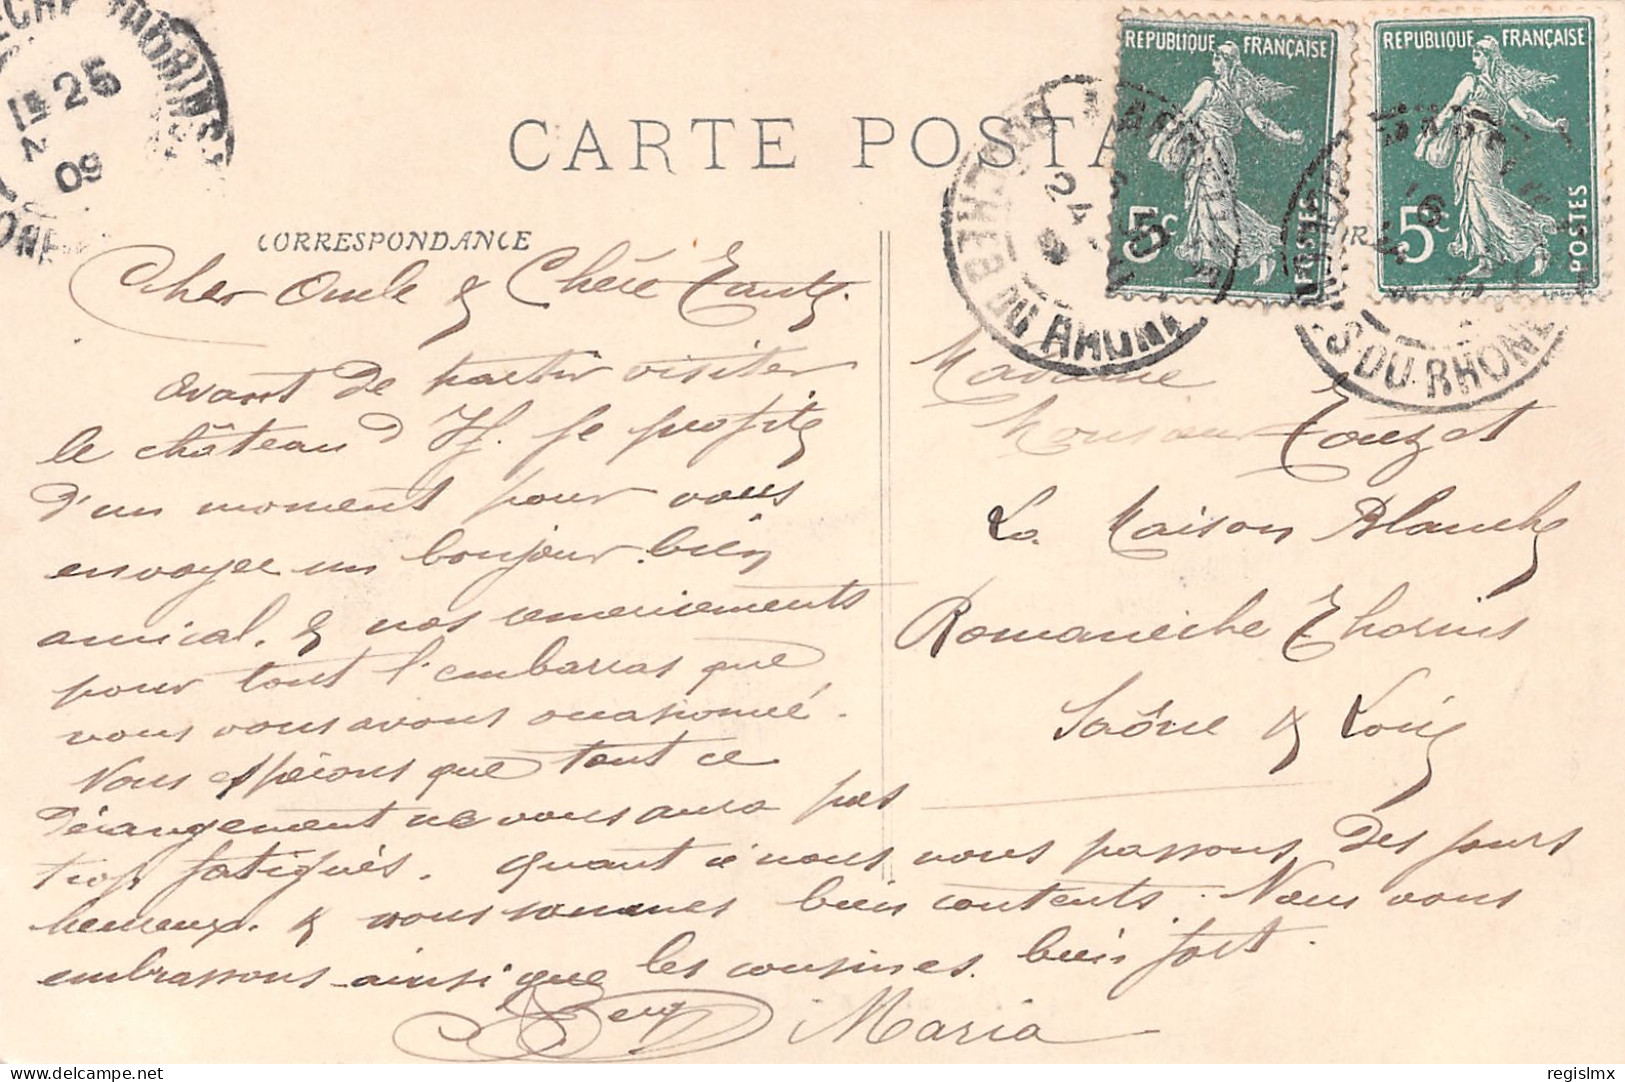 CARTE POSTA
CORRESPONDANCE
RÉPUBLIQUE FRANÇAISE
5c
POSTES
RÉPUBLIQUE FRANÇAISE
5c
POSTES
25
09
24
BOUCHES DU RHONE
S DU RHONE
Cher Oncle & Chère Tante.
Avant de partir visiter
le château d'If. je profite
d'un moment pour vous
envoyer un bonjour bien
amical. & nos remerciements
pour tout l'embarras que
nous vous avons occasionné.
Nous espérons que tout ce
dérangement ne vous aura pas
trop fatigués. quant à nous nous passons des jours
heureux. & nous sommes bien contents. Nous vous
embrassons ainsi que les cousines. bien fort.
Maria
Madame
Monsieur Touzot
La Maison Blanche
Romanèche Thorins
Saône & Loire
regislmx
delcampe.net